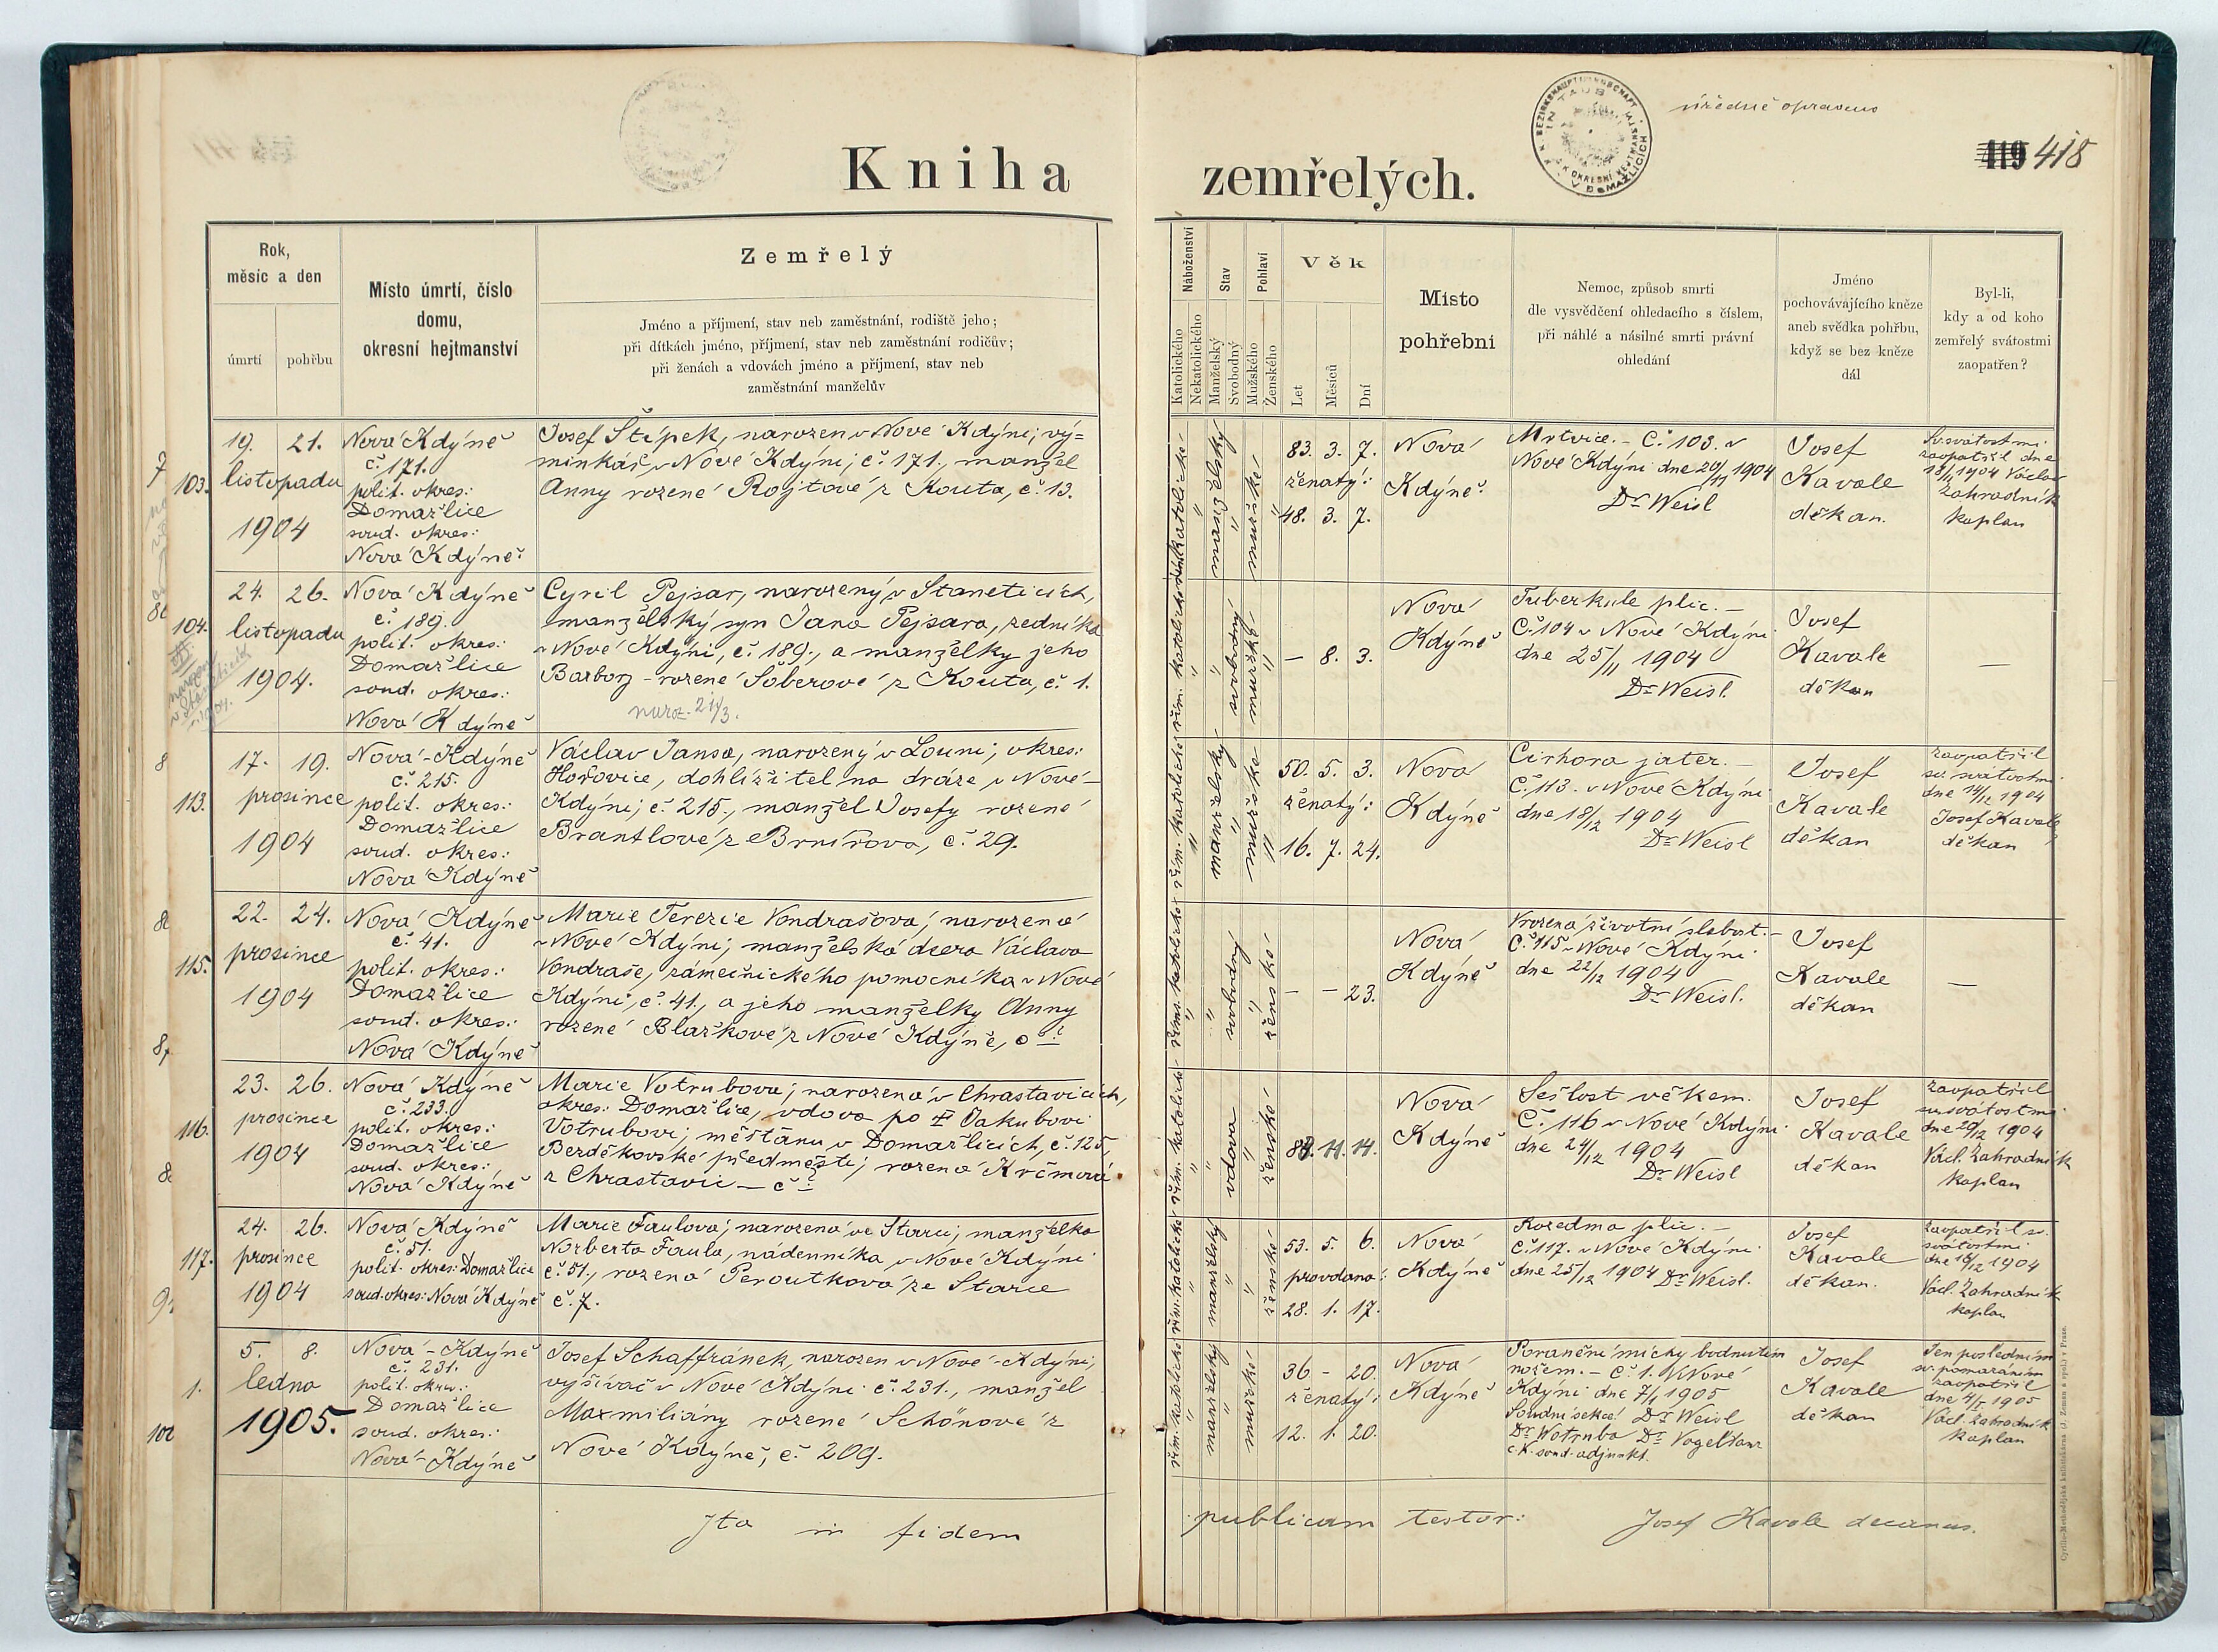 Kniha
zemřelých.
úředně opraveno
K. K. BEZIRKSHAUPTMANNSCHAFT IN TAUS
C. K. OKRESNÍ HEJTMANSTVÍ V DOMAŽLICÍCH
419 418
Rok,
měsíc a den
úmrtí
pohřbu
Místo úmrtí, číslo
domu,
okresní hejtmanství
Zemřelý
Jméno a příjmení, stav neb zaměstnání, rodiště jeho;
při dítkách jméno, příjmení, stav neb zaměstnání rodičův;
při ženách a vdovách jméno a příjmení, stav neb
zaměstnání manželův
Náboženství
Katolického
Nekatolického
Stav
Manželský
Svobodný
Pohlaví
Mužského
Ženského
Věk
Let
Měsíců
Dní
Místo
pohřební
Nemoc, způsob smrti
dle vysvědčení ohledacího s číslem,
při náhlé a násilné smrti právní
ohledání
Jméno
pochovávajícího kněze
aneb svědka pohřbu,
když se bez kněze
dál
Byl-li,
kdy a od koho
zemřelý svátostmi
zaopatřen?
103.
19. 21.
listopadu
1904
Nová Kdýně
č. 171.
polit. okres:
Domažlice
soud. okres:
Nová Kdýně
Josef Štípek, narozen v Nové Kdýni; vý=
minkář v Nové Kdýni; č. 171., manžel
Anny rozené Rojtové z Kouta, č. 13.
řím. katolické
manželský
mužské
83. 3. 7.
ženatý:
48. 3. 7.
Nová
Kdýně
Mrtvice. - Č. 103. v
Nové Kdýni dne 20/11 1904
Dr Weisl
Josef
Kavale
děkan.
Sv. svátostmi
zaopatřil dne
18/11 1904 Václav
Zahradník
kaplan
104.
24. 26.
listopadu
1904.
Nová Kdýně
č. 189.
polit. okres:
Domažlice
soud. okres:
Nová Kdýně
Cyril Pejsar, narozený v Staněticích,
manželský syn Jana Pejsara, zedníka
v Nové Kdýni, č. 189., a manželky jeho
Barbory - rozené Šoberové z Kouta, č. 1.
naroz. 21/3.
řím. katolické
svobodný
mužské
- 8. 3.
Nová
Kdýně
Tuberkule plic. -
Č. 104 v Nové Kdýni
dne 25/11 1904
Dr Weisl.
Josef
Kavale
děkan
—
113.
17. 19.
prosince
1904
Nová-Kdýně
č. 215.
polit. okres:
Domažlice
soud. okres:
Nová Kdýně
Václav Jansa, narozený v Louni; okres:
Hořovice, dohlížitel na dráze v Nové-
Kdýni; č. 215., manžel Josefy rozené
Brantlové z Brnířova, č. 29.
řím. katolické
manželský
mužské
50. 5. 3.
ženatý:
16. 7. 24.
Nová
Kdýně
Cirhora jater. -
Č. 113. v Nové Kdýni
dne 18/12 1904
Dr Weisl
Josef
Kavale
děkan
zaopatřil
sv. svátostmi
dne 14/12 1904
Josef Kavale,
děkan
115.
22. 24.
prosince
1904
Nová Kdýně
č. 41.
polit. okres:
Domažlice
soud. okres:
Nová Kdýně
Marie Terezie Vondrašova, narozená
v Nové Kdýni; manželská dcera Václava
Vondraše, zámečnického pomocníka v Nové
Kdýni, č. 41., a jeho manželky Anny
rozené Blažkové z Nové Kdýně, č. ?
řím. katolické
svobodný
ženské
- - 23.
Nová
Kdýně
Vrozená životní slabost. -
Č. 115 v Nové Kdýni
dne 22/12 1904
Dr Weisl.
Josef
Kavale
děkan
—
116.
23. 26.
prosince
1904
Nová Kdýně
č. 233.
polit. okres:
Domažlice
soud. okres:
Nová Kdýně
Marie Votrubova; narozená v Chrastavicích,
okres: Domažlice, vdova po † Jakubovi
Votrubovi; měšťanu v Domažlicích, č. 125,
Bezděkovské předměstí; rozená Krčmová
z Chrastavic - č. ?
řím. katolické
vdova
ženské
11. 14.
Nová
Kdýně
Sešlost věkem.
Č. 116 v Nové Kdýni
dne 24/12 1904
Dr Weisl
Josef
Kavale
děkan
zaopatřil
sv. svátostmi
dne 20/12 1904
Václ. Zahradník
kaplan
117.
24. 26.
prosince
1904
Nová Kdýně
č. 51.
polit. okres: Domažlice
soud. okres: Nová Kdýně
Marie Faulova; narozená ve Starci; manželka
Norberta Faula, nádenníka v Nové Kdýni
č. 51., rozená Peroutková ze Starce
č. 7.
řím. katolické
manželský
ženské
53. 5. 6.
provdaná:
28. 1. 17.
Nová
Kdýně
Rozedma plic. -
č. 117. v Nové Kdýni
dne 25/12 1904 Dr Weisl.
Josef
Kavale
děkan.
zaopatřil sv.
svátostmi
dne 18/12 1904
Václ. Zahradník
kaplan
1.
5. 8.
ledna
1905.
Nová-Kdýně
č. 231.
polit. okres:
Domažlice
soud. okres:
Nová-Kdýně
Josef Schaffránek, narozen v Nové-Kdýni,
vyšívač v Nové Kdýni č. 231., manžel
Maxmiliány rozené Schönové z
Nové Kdýně, č. 209.
řím. katolické
manželský
mužské
36 - 20.
ženatý:
12. 1. 20.
Nová
Kdýně
Poranění míchy bodnutím
nožem. - Č. 1. V Nové
Kdýni dne 7/1 1905
Soudní sekce: Dr Weisl
Dr Votruba Dr Vogeltanz
c. k. soud. adjunkt.
Josef
Kavale
děkan
Jen posledním
sv. pomazáním
zaopatřil
dne 4/1 1905
Václ. Zahradník
kaplan
Ita in fidem
publicam testor:
Josef Kavale decanus.